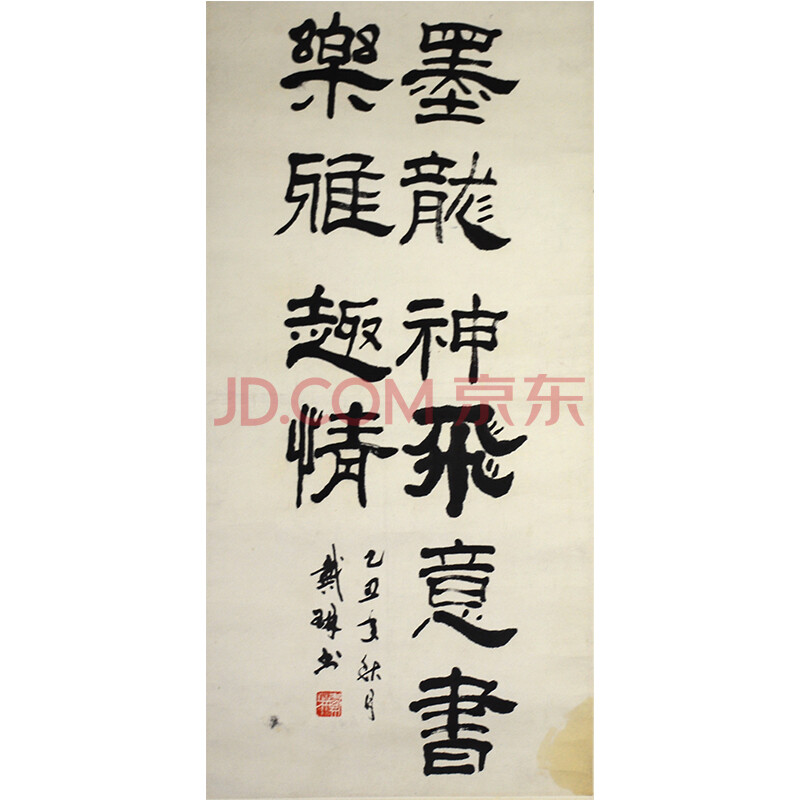 墨龍神飛意書
樂雅趣情
乙丑年秋月
戴琳书
JD.COM 京东